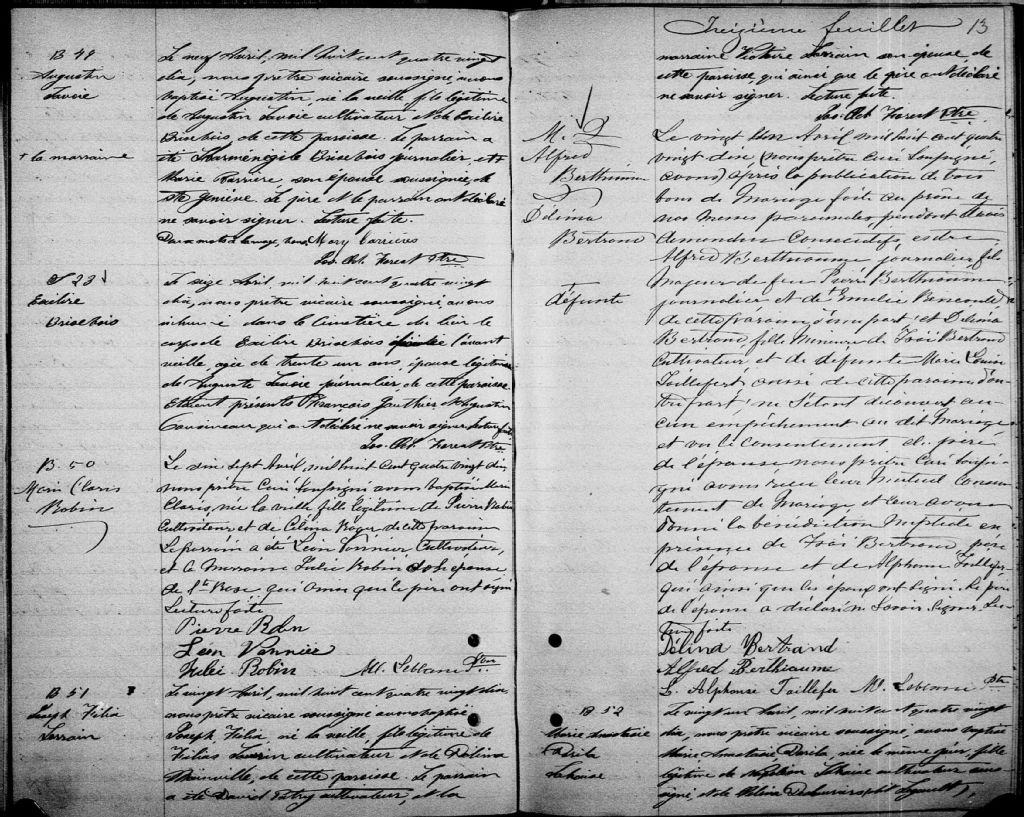 B 49
Augustin
Savoie
+ la marraine
Le neuf Avril, mil huit cent quatre vingt
dix, nous prêtre vicaire soussigné avons
baptisé Augustin, né la veille fils légitime
de Augustin Savoie cultivateur et de Exilire
Brisebois, de cette paroisse. Le parrain a
été Brisebois journalier, et
Marie Barrière, son épouse soussignée, de
Ste Geneviève. Le père et le parrain ont déclaré
ne savoir signer. Lecture faite.
Mary Carrieres
Jos. Forest Ptre
S 23
Exilire
Brisebois
Le seize Avril, mil huit cent quatre vingt
dix, nous prêtre vicaire soussigné, avons
inhumé dans le Cimetière du lieu le
corps de Exilire Brisebois l'avant
veille, agée de trente un ans, épouse légitime
de Auguste Savoie journalier, de cette paroisse
Etaient présents François Gauthier et Augustin
qui ont déclaré ne savoir signer. Lecture faite
Jos. Forest Ptre
B. 50
Marie Claris
Robin
Le dix sept Avril, mil huit Cent quatre vingt dix
nous prêtre Curé soussigné avons baptisé Marie
Claris, née la veille fille légitime de Pierre Robin
Cultivateur, et de Célina Roger de cette paroisse
Le parrain a été Léon Vannier Cultivateur,
et la Marraine Julie Robin son épouse
de Ste Rose qui ainsi que le père ont signé
Lecture faite
Pierre Robin
Leon Vannier
Julie Robin M. Leblanc Ptre
B 51
Joseph Félia
Lorrain
Le vingt Avril, mil huit cent quatre vingt dix
nous prêtre vicaire soussigné avons baptisé
Joseph, Félia né la veille, fils légitime de
Félias Lorrain cultivateur et de Délina
de cette paroisse. Le parrain
a été David cultivateur, et la
Treizième feuillet 13
marraine Victoire Lorrain son épouse, de
cette paroisse, qui ainsi que le père ont déclaré
ne savoir signer. Lecture faite.
Jos. Forest Ptre
M. 9
Alfred
Berthiaume
&
Délima
Bertrand
défunte
Le vingt un Avril mil huit cent quatre
vingt dix (nous prêtre Curé Soussigné,
avons) après la publication de trois
bans de Mariage faite au prône de
nos Messes paroissiales, pendant trois
dimanches Consécutifs, entre
Alfred Berthiaume journalier fils
Majeur de feu Pierre Berthiaume
journalier et de Emelie
de cette paroisse d'une part; et Délima
Bertrand, fille Mineure de Bertrand
Cultivateur et de défunte Marie Louise
Taillefer, aussi de cette paroisse d'au-
tre part; ne s'étant découvert au-
cun empêchement au dit Mariage
et vu le consentement du père
de l'épouse nous prêtre Curé soussi-
gné avons reçu leur Mutuel Consen-
tement de Mariage et leur avons
donné la bénédiction Nuptiale en
présence de Bertrand père
de l'épouse et de Alphonse Taillefer
qui ainsi que les époux ont signé. Le père
de l'épouse a déclaré ne Savoir Signer Lec-
ture faite
Delina Bertrand
Alfred Berthiaume
L. Alphonse Taillefer M. Leblanc Ptre
B 52
Marie Anastasie
Dorila
Le vingt un Avril, mil huit cent quatre vingt
dix, nous prêtre vicaire soussigné, avons baptisé
Marie Anastasie Dorila, née le même jour, fille
légitime de cultivateur sous-
signé, et de Délina